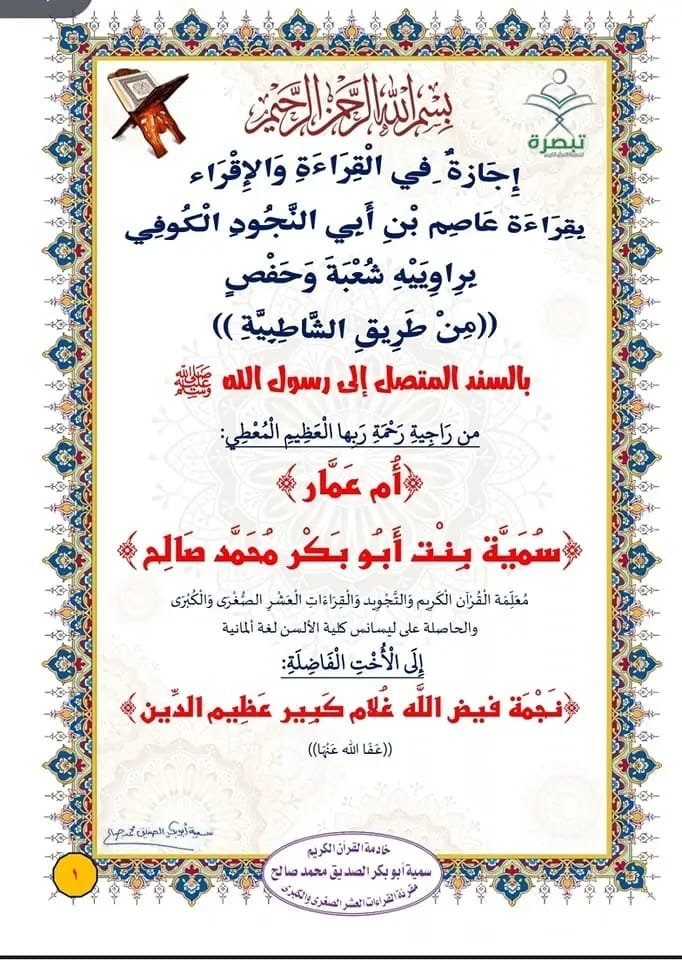 بِسْمِ اللَّهِ الرَّحْمَنِ الرَّحِيمِ
تبصرة
إِجَازَةٌ فِي الْقِرَاءَةِ وَالإِقْرَاء
بِقِرَاءَة عَاصِم بْنِ أَبِي النَّجُودِ الْكُوفِي
بِرِاوِيَيْهِ شُعْبَةَ وَحَفْصٍ
((مِنْ طَرِيقِ الشَّاطِبِيَّةِ ))
بالسند المتصل إلى رسول الله ﷺ
من رَاجِيةِ رَحْمَةِ رَبِها الْعَظِيمِ الْمُعْطِي:
﴿أُم عَمَّار﴾
﴿سُمَيَّة بِنْت أَبُو بَكْر مُحَمَّد صَالِح﴾
مُعَلِمَة الْقُرْآن الْكَرِيم وَالتَّجْوِيد وَالْقِرَاءَاتِ الْعَشْرِ الصُّغْرَى وَالْكُبْرَى
والحاصلة على ليسانس كلية الألسن لغة ألمانية
إِلَى الْأُخْتِ الْفَاضِلَةِ:
﴿نَجْمَة فيض اللَّه غُلام كَبِير عَظِيم الدِّين﴾
((عَفَا الله عَنْهَا))
سمية أبو بكر الصديق محمد صالح
خادمة القرآن الكريم
سمية أبو بكر الصديق محمد صالح
مقرئة القراءات العشر الصغرى والكبرى
١